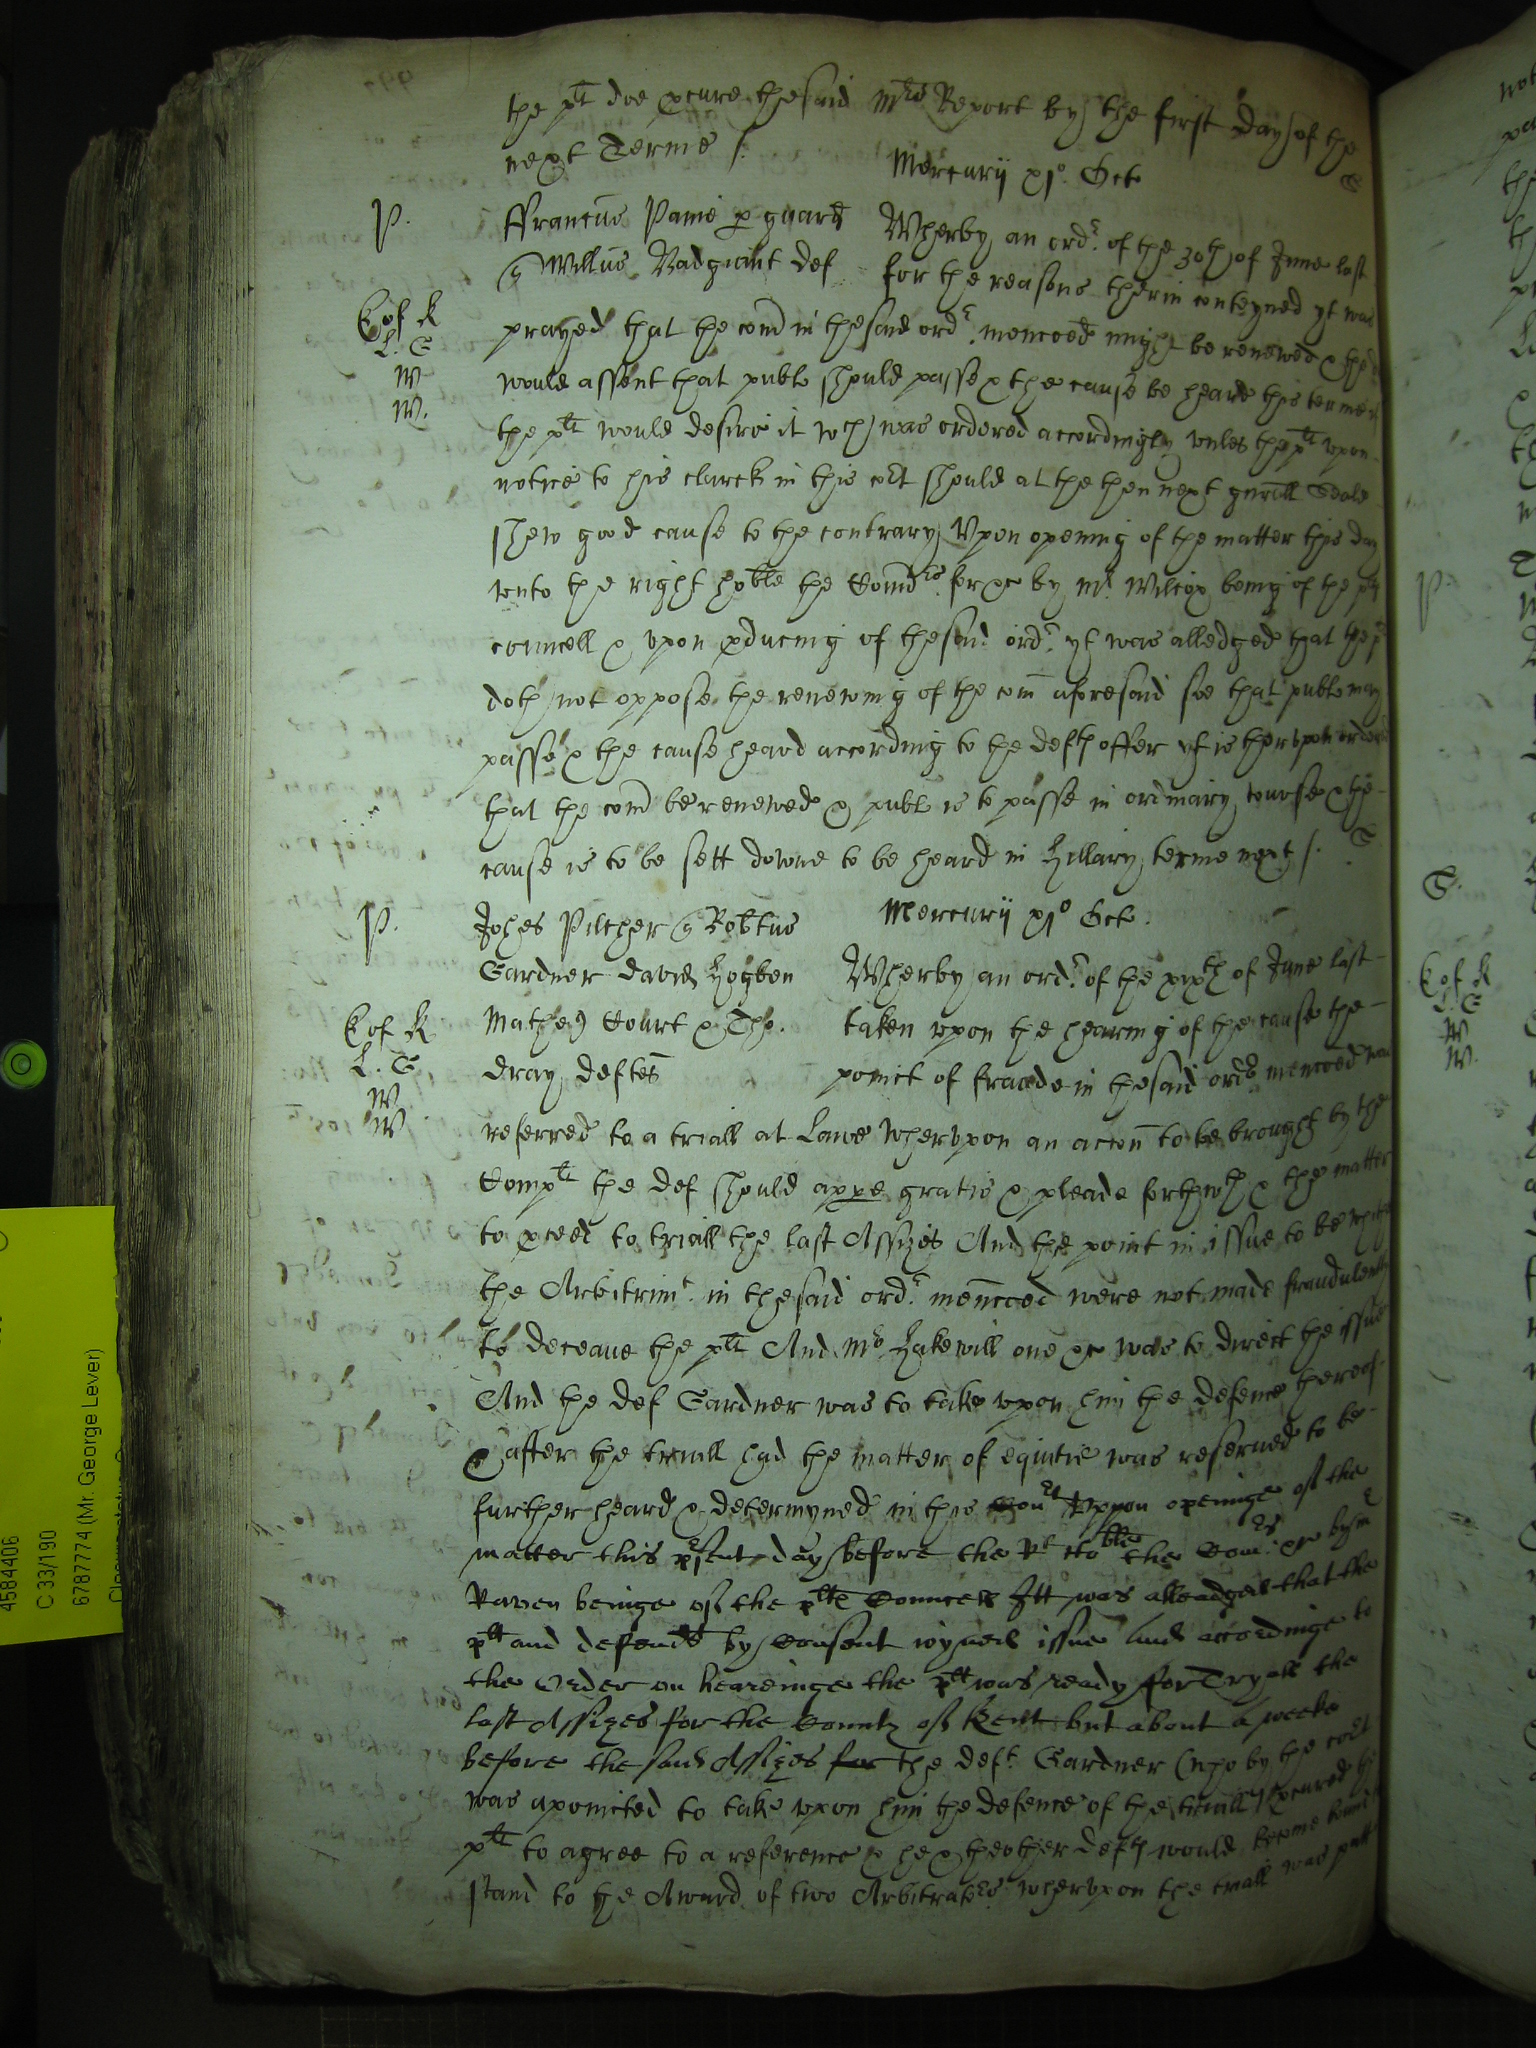 the plt doe pcure the said Mrs Report by the first day of the
next Terme /.
Mercurij xjo. Octo
P.
ffrancus Paine p guard
Wherby an ordr. of the 30th of June last
Willus Badgnint def
for the reasons therin conteyned yt was
E of K
L. G
W
W.
prayed that the com in the said ordr. mencoed might be renewed & the
would assent that publ should passe & the cause be heard this terme if
the plt would desire it wch was ordered accordingly unles the plt upon
notice to his clarck in this cot should at the then next gnrall Seale
shew good cause to the contrary, Upon opening of the matter this day
unto the right hoble the Comrs. for &c by Mr. Wilcox being of the plts
councell & upon pducing of the said ordr. yt was alledged that the
doth not oppose the renewing of the com aforesaid soe that publ may
passe & the cause heard according to the defts offer yt is therupon ordered
that the com be renewed & publ is to passe in ordinary course & the
cause is to be sett downe to be heard in Hillary terme next /.
Mercurij xjo Octo.
P.
Johes Pilcher Robtus
Gardner David Hogben
Wherby an ordr. of the xixth of June last
E of K
L. G
W
W
Mathew Court & Tho.
taken upon the hearing of the cause the
dray deftes
point of fraude in the said ordr mencoed was
referred to a triall at Lawe wherupon an accon to be brought by the
Complt the def should appe gratis & pleade forthwth & the matter
to pceed to triall the last Assizes And the point in issue to be whether
the Arbitrimt. in the said ordr. mencoed were not made fraudulently
to deceave the plt And Mr Hakewill one &c was to direct the issue
And the def Gardner was to take upon him the defence thereof
& after the triall had the matter of equitie was reserued to be
further heard & determyned in this Court Uppon openinge of the
matter this psent day before the Rt Hoble the Comrs. &c by Mr
Raven beinge of the plts Councell Itt was alleadged that the
plt and defendts by Consent ioyned issue And accordinge to
the Order on hearinge the plt was ready for Tryall the
last Assizes for the County of Kent but about a weeke
before the said Assizes for the deft. Gardner (who by the cort
was apointed to take upon him the defence of the triall) pcured the
plt to agree to a reference & he & the other defts would become bound to
stand to the Award of two Arbitrators wherupon the triall was putt
P.
G.
E of K
L. G
W
W.
4584406
C 33/190
6787774 (Mr. George Lever)